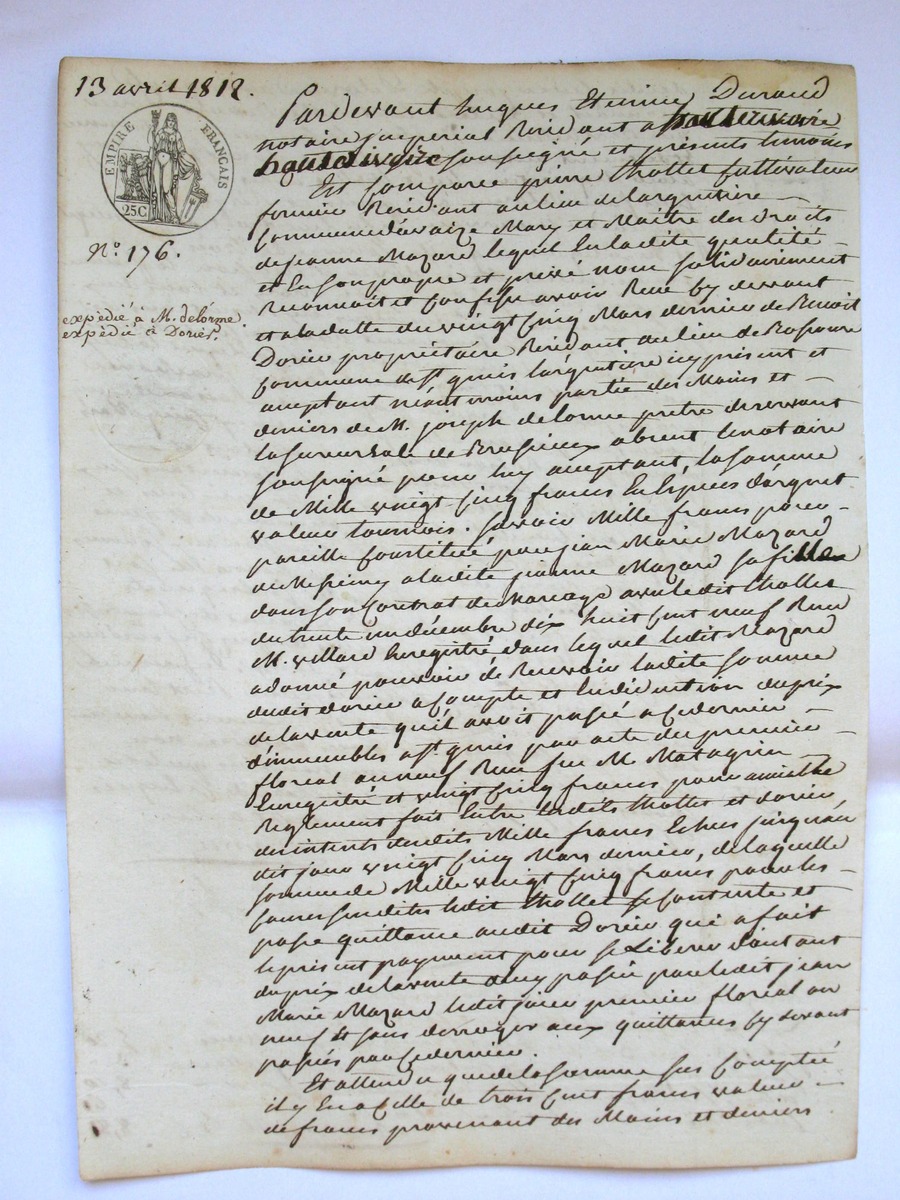 13 avril 1812.
EMPIRE FRANÇAIS
25C
N.º 176.
expédié à M. delorme
expédié à Dorier.
Pardevant hugues Etienne Durand
notaire imperial Residant a hauterivoire
hauterivoire soussigné et présents témoins
Est comparu pierre thollet cultivateur
fermier Residant au lieu de largentiere
commune d'aveize Mary et Maitre des Droits
de jeanne Mazard lequel En ladite qualité
et En son propre et privé nom solidairement
Reconnoit et confesse avoir Reçu cy devant
et a la datte du vingt cinq Mars dernier de Benoit
Dorier propriétaire Residant au lieu de
commune de St. genis l'argentiere icy présent et
acceptant néantmoins partie des Mains et
deniers de M. joseph delorme pretre desservant
la succursale de Brussieux absent le notaire
soussigné pour luy acceptant, la somme
de Mille vingt cinq francs En Espèces d'argent
valeur tournois. savoir Mille francs pour
pareille Constituée par jean Marie Mazard
de a ladite jeanne Mazard sa fille
dans son Contrat de Mariage avec ledit thollet
du trente un décembre dix huit cent neuf Reçu
M. villard Enregistré dans lequel ledit Mazard
a donné pouvoir de Recevoir ladite somme
dudit dorier a Compte et En diduction du prix
de la vente qu'il avoit passé a ce dernier
d'immeubles a St. genis par acte du premier
floreal an neuf Reçu feu M. Matagrin
Enregistré et vingt cinq francs pour amiable
Reglement fait Entre lesdits thollet et dorier
des intérets desdits Mille francs Echus jusqu'au
dit jour vingt cinq Mars dernier, de laquelle
somme de Mille vingt cinq francs pour les
causes susdites ledit thollet se contente et
passe quittance audit Dorier qui a fait
le présent payment pour se Libérer d'autant
du prix de la vente a luy passée par ledit jean
Marie Mazard ledit jour premier floreal an
neuf & sans derroger aux quittances cy devant
passés par ce dernier.
Et attendu que de la somme sus Comptée
il y En a Celle de trois cent francs valeur
de francs provenant des Mains et deniers